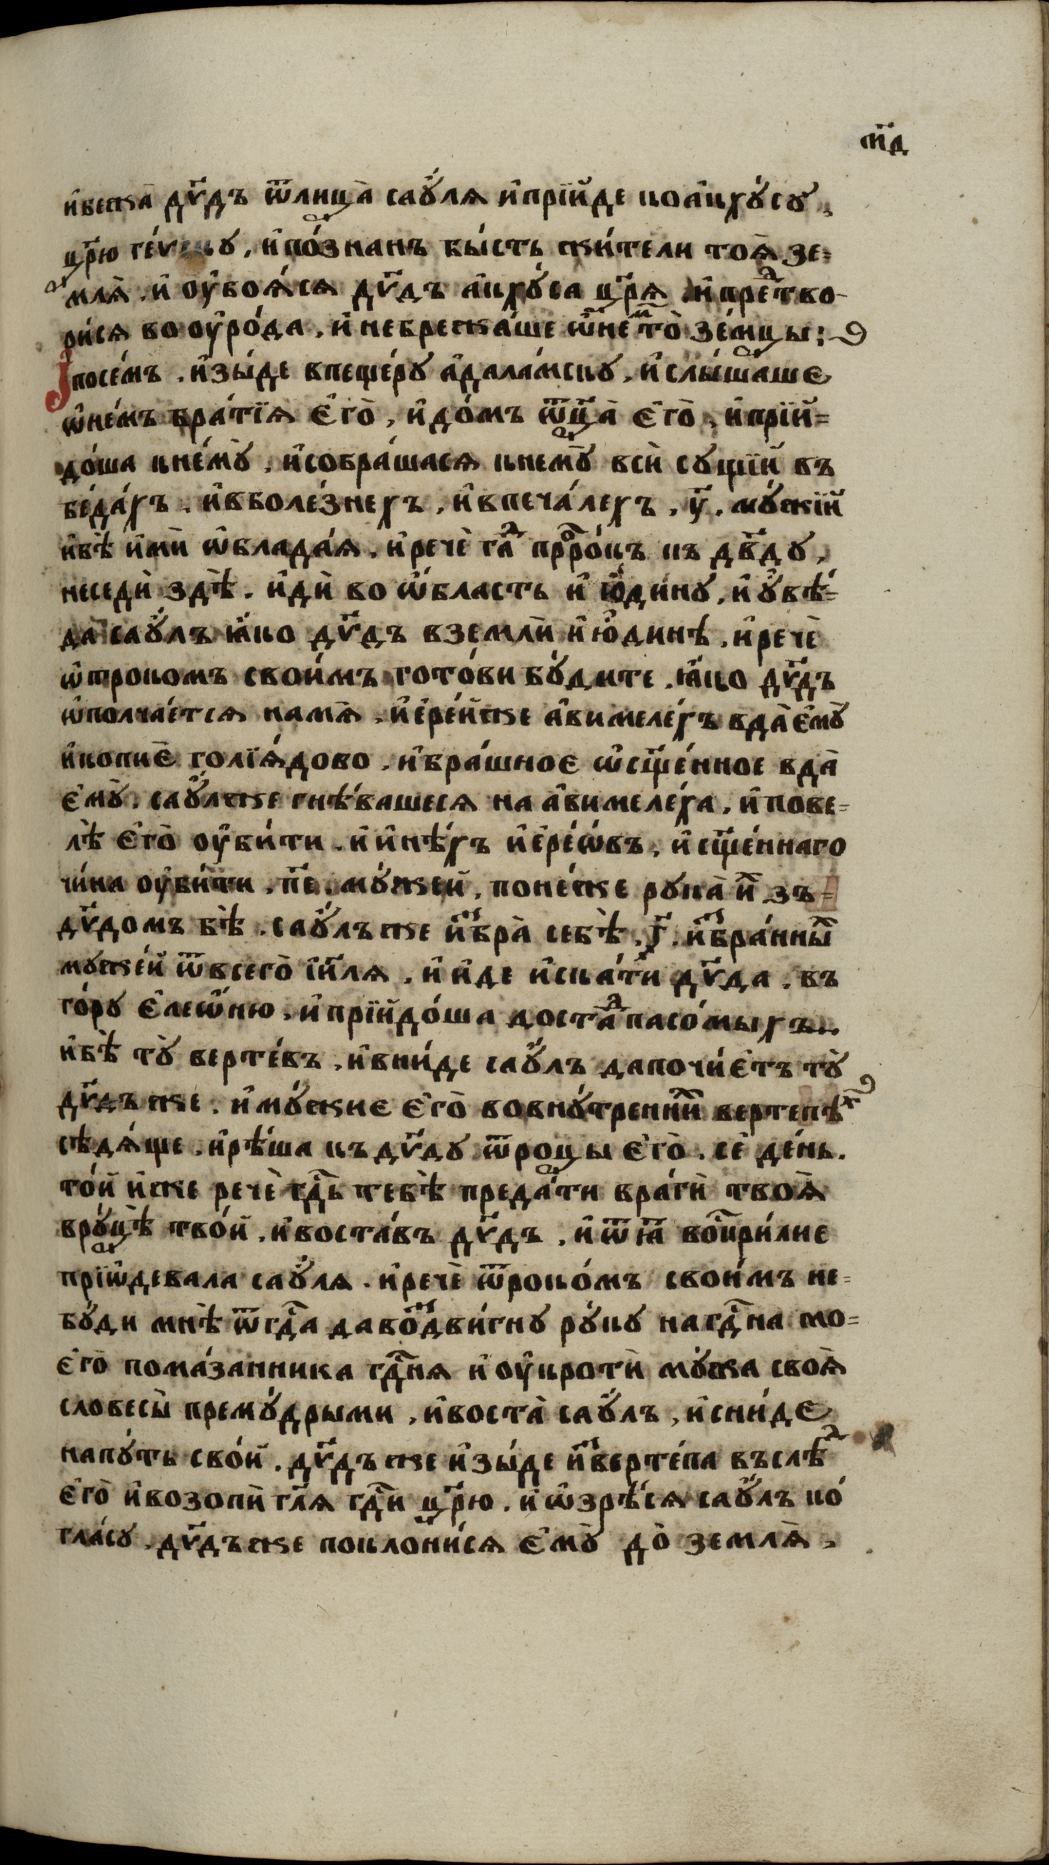 м҃д
и҆бежа̀ дв҃дъ ѿлица̀ саꙋ́ля и҆прїи́де коа҆нхꙋ́сꙋ,
цр҃ю ге́ѵскꙋ, и҆по́знанъ бы́сть жи́тели тоя̀ зе=
мля̀. и҆ оу҆боя́ся дв҃дъ а҆нхꙋ́са цр҃я̀ и҆претво-
ри́ся во оу҆ро́да, и҆небрежа́ше ѡ҆не́мъ то̀ зе́мцы:
І҆посе́мъ. и҆зы́де впещерꙋ а҆дала́мскꙋ, и҆слы́шаше
ѡ҆не́мъ бра́тїя є҆го̀, и҆до́мъ ѿц҃а̀ є҆го̀, и҆прїи=
до́ша кнемꙋ̀, и҆собра́шася кнемꙋ̀ всѝ сꙋщїи въ
беда́хъ. и҆вболе́знехъ, и҆впеча́лехъ, у҃. мꙋ́жїй
и҆бѣ̀ и҆мѝ ѡ҆блада́я. и҆речѐ га́дъ прⷪ҇ро́къ къ дв҃дꙋ,
неседѝ здѣ̀. и҆дѝ во ѡ҆́бласть и҆ ю҆ди́нꙋ, и҆ ᲂу҆вѣ́=
да̀ саꙋ́лъ ꙗ҆́ко дв҃дъ вземлѝ и҆ ю҆́динѣ, и҆речѐ
ѿрокомъ свои́мъ гото́ви бꙋ́дите. ꙗ҆́ко дв҃дъ
ѡ҆полча́ется намя̀, и҆ є҆ре́й же а҆вимеле́хъ вда̀ є҆мꙋ̀
и҆копиѐ голїя́дово. и҆бра́шное ѡ҆сщ҃е́нное вда̀
є҆мꙋ̀. саꙋ́лже гнѣ́вашеся на а҆вимеле́ха, и҆пове=
лѣ̀ є҆го̀ оу҆би́ти. и҆ и҆нѣ́хъ и҆ є҆ре́ѡвъ, и҆ сщ҃е́ннаго
чи́на оу҆би́ти. п҃е. мꙋ́жей, поне́же рꙋка̀ и҆́хъ зъ=
дв҃домъ бѣ̀. саꙋ́лъ же и҆збра̀ себѣ̀. г҃. и҆збра́нныхъ
мꙋже́й ѿвсего̀ і҆и҃ля, и҆ и҆́де и҆ска́ти дв҃да. въ
го́рꙋ є҆леѡ҆́ню. и҆прїидо́ша доста́дъ пасо́мыхъ.
и҆бѣ̀ тꙋ̀ верте́въ. и҆вни́де саꙋ́лъ дапочи́етъ тꙋ̀
дв҃дъ же. и҆мꙋ́жие є҆го̀ вовнꙋ́треннихъ вертепѣхъ
сѣдя́ще. и҆рѣ́ша къ дв҃дꙋ ѿроцы є҆го̀. сѐ де́нь.
то́й и҆́же речѐ гдⷭ҇ь тебѣ̀ преда́ти врагѝ твоя̀
врꙋ́цѣ тво́й. и҆воста́въ дв҃дъ. и҆ ѿꙗ́ воскри́лие
прїѡ҆дева́ла саꙋ́ля. и҆речѐ ѿроко́мъ свои́мъ не=
бꙋ́ди мнѣ̀ ѿгдⷭ҇а давоздви́гнꙋ рꙋ́кꙋ нагдⷭ҇на мо=
є҆го̀ пома́занника гдⷭ҇ня и҆ оу҆кротѝ мꙋ́жа своя̀
словесы̀ премꙋ́дрыми, и҆воста̀ саꙋ́лъ, и҆сни́де
напꙋ́ть сво́й. дв҃дъ же и҆зы́де и҆зверте́па въслѣдъ
є҆го̀ и҆возопѝ гл҃я гдⷭ҇и цр҃ю. и҆ ѡ҆зрѣ́ся саꙋ́лъ ко́
гла́сꙋ. дв҃дъ же поклони́ся є҆мꙋ̀ до̀ земля̀,